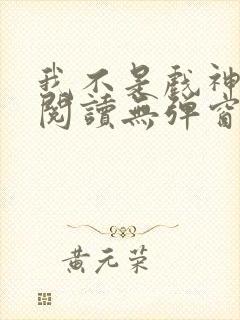 我不是戲神
閱讀無彈窗
黃元荣